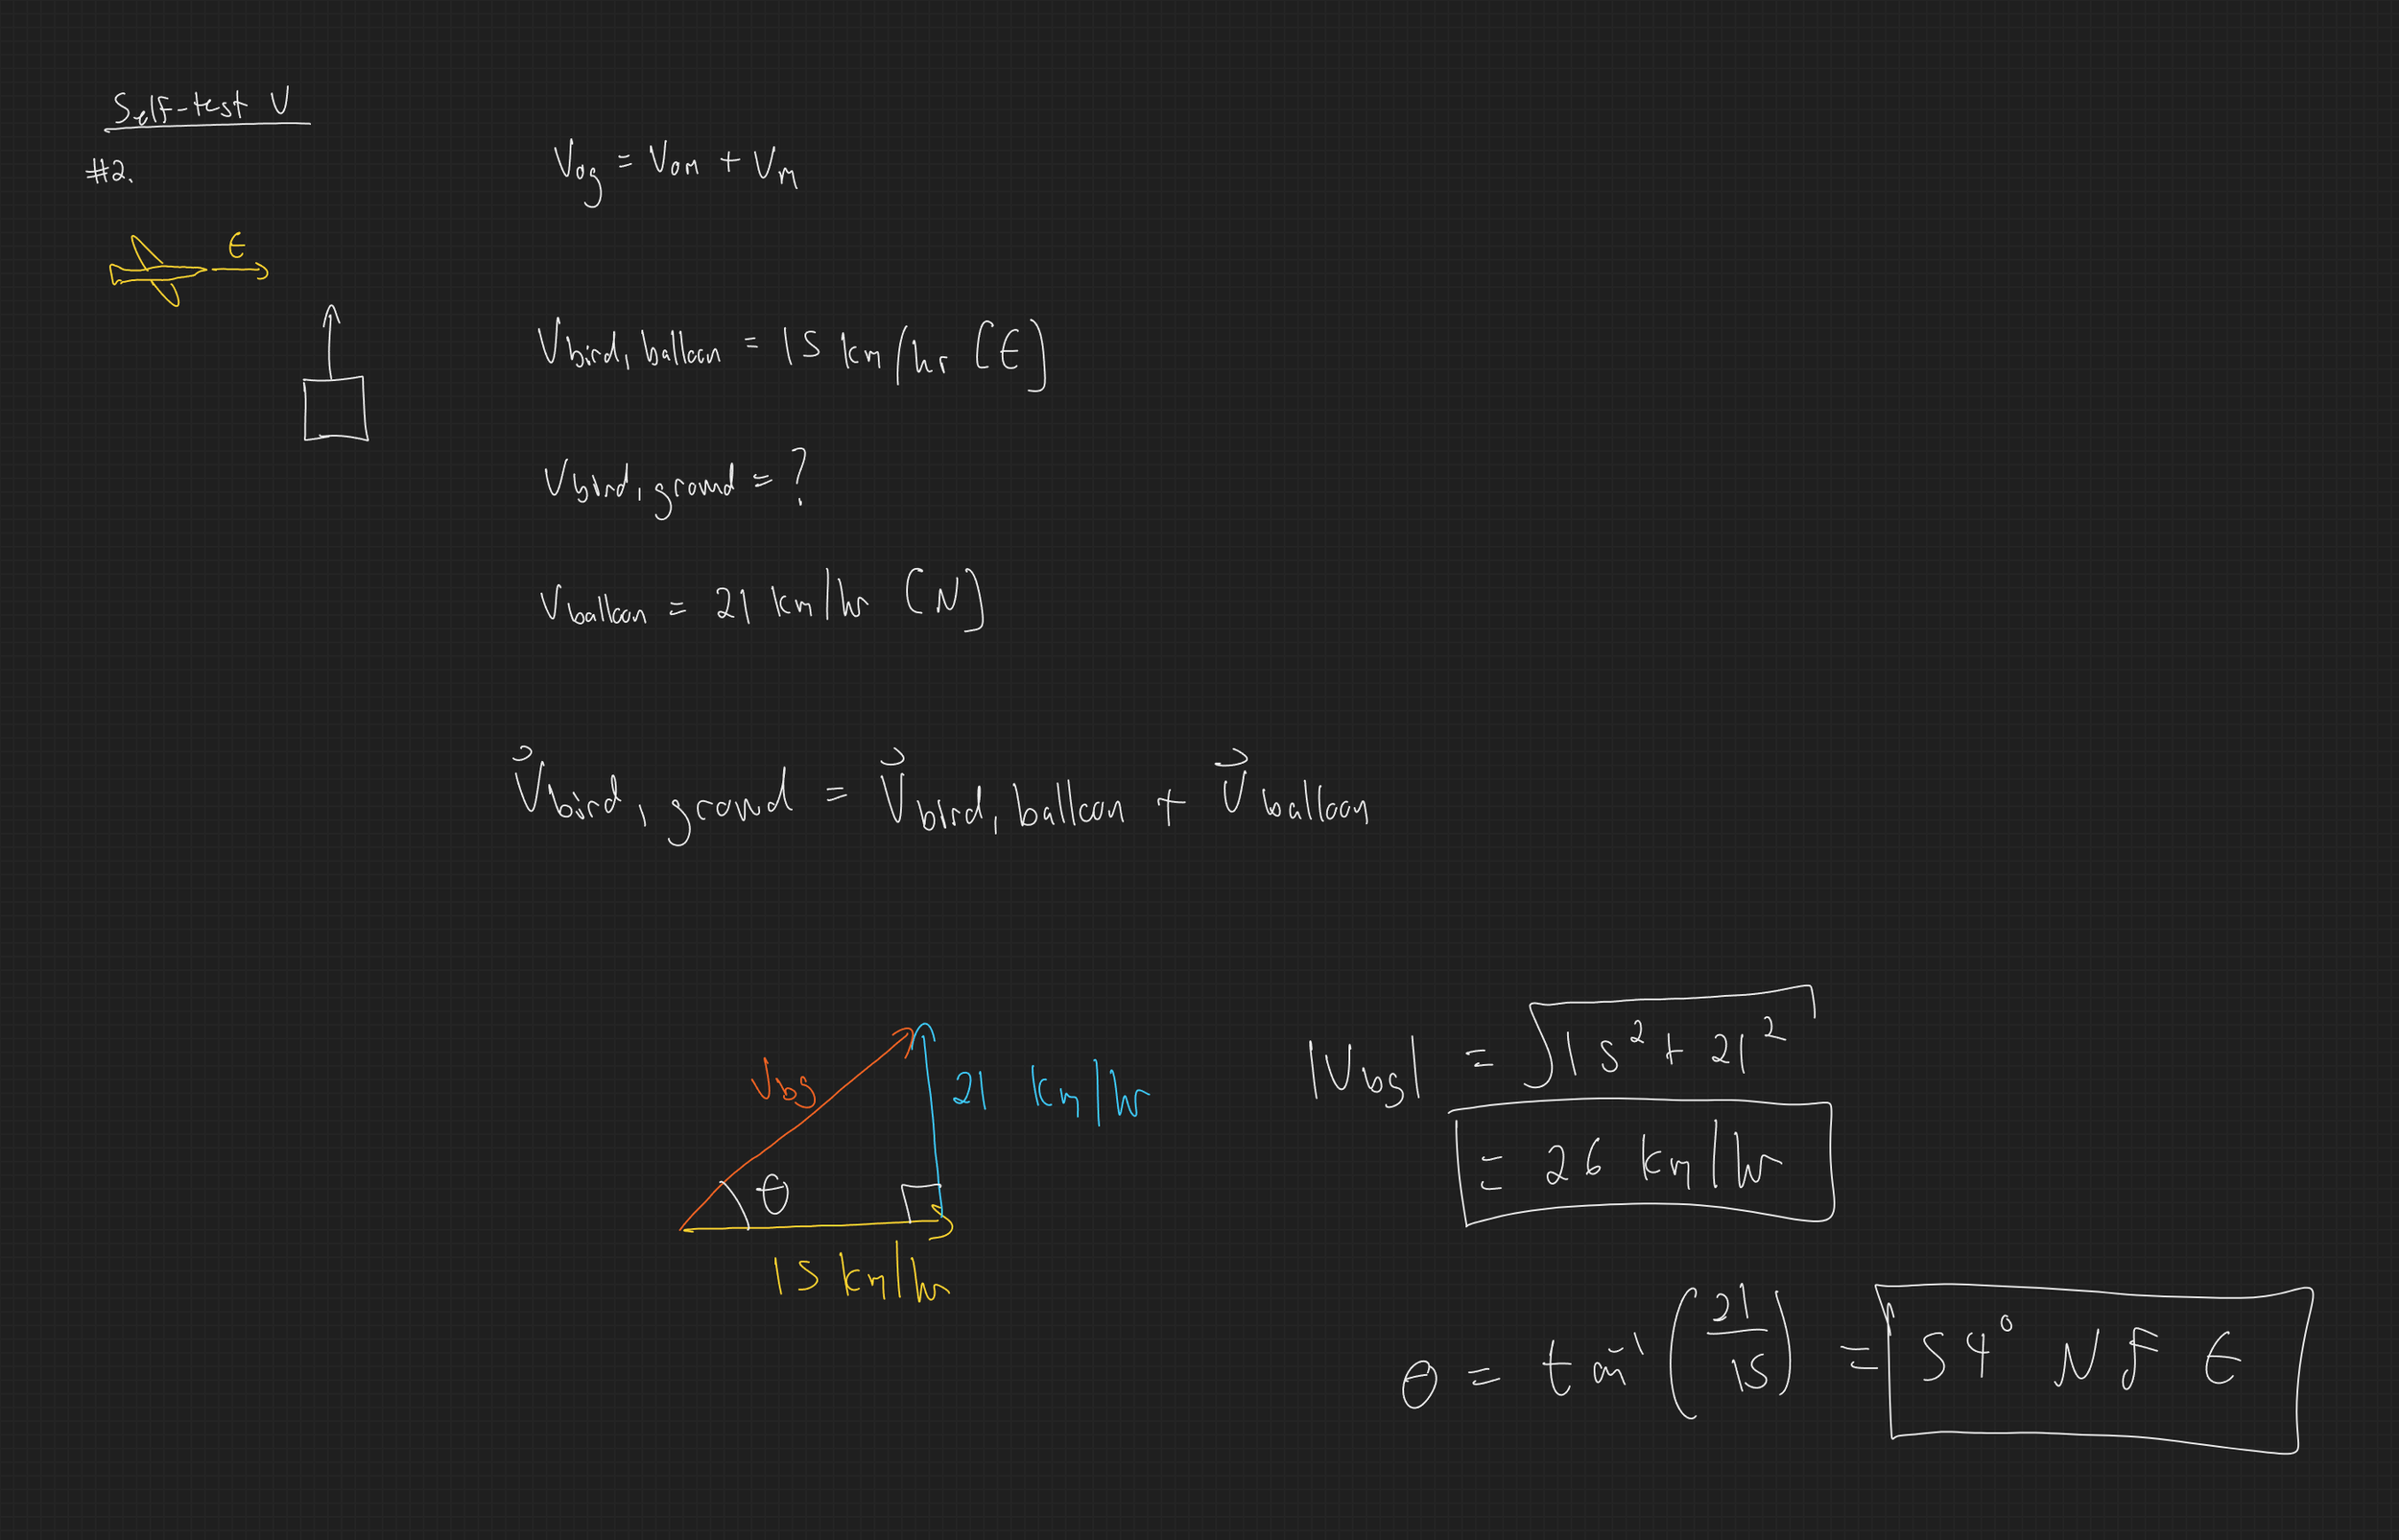 Self-test V
#2.
Vog = Vom + Vm
E
Vbird, balloon = 15 km/hr (E)
Vbird, ground = ?
Vballoon = 21 km/hr (N)
V⃗bird, ground = V⃗bird, balloon + V⃗balloon
Vbg
21 km/hr
θ
15 km/hr
|Vbg| = √15² + 21²
= 26 km/hr
θ = tan⁻¹ (21/15) = 54° N of E